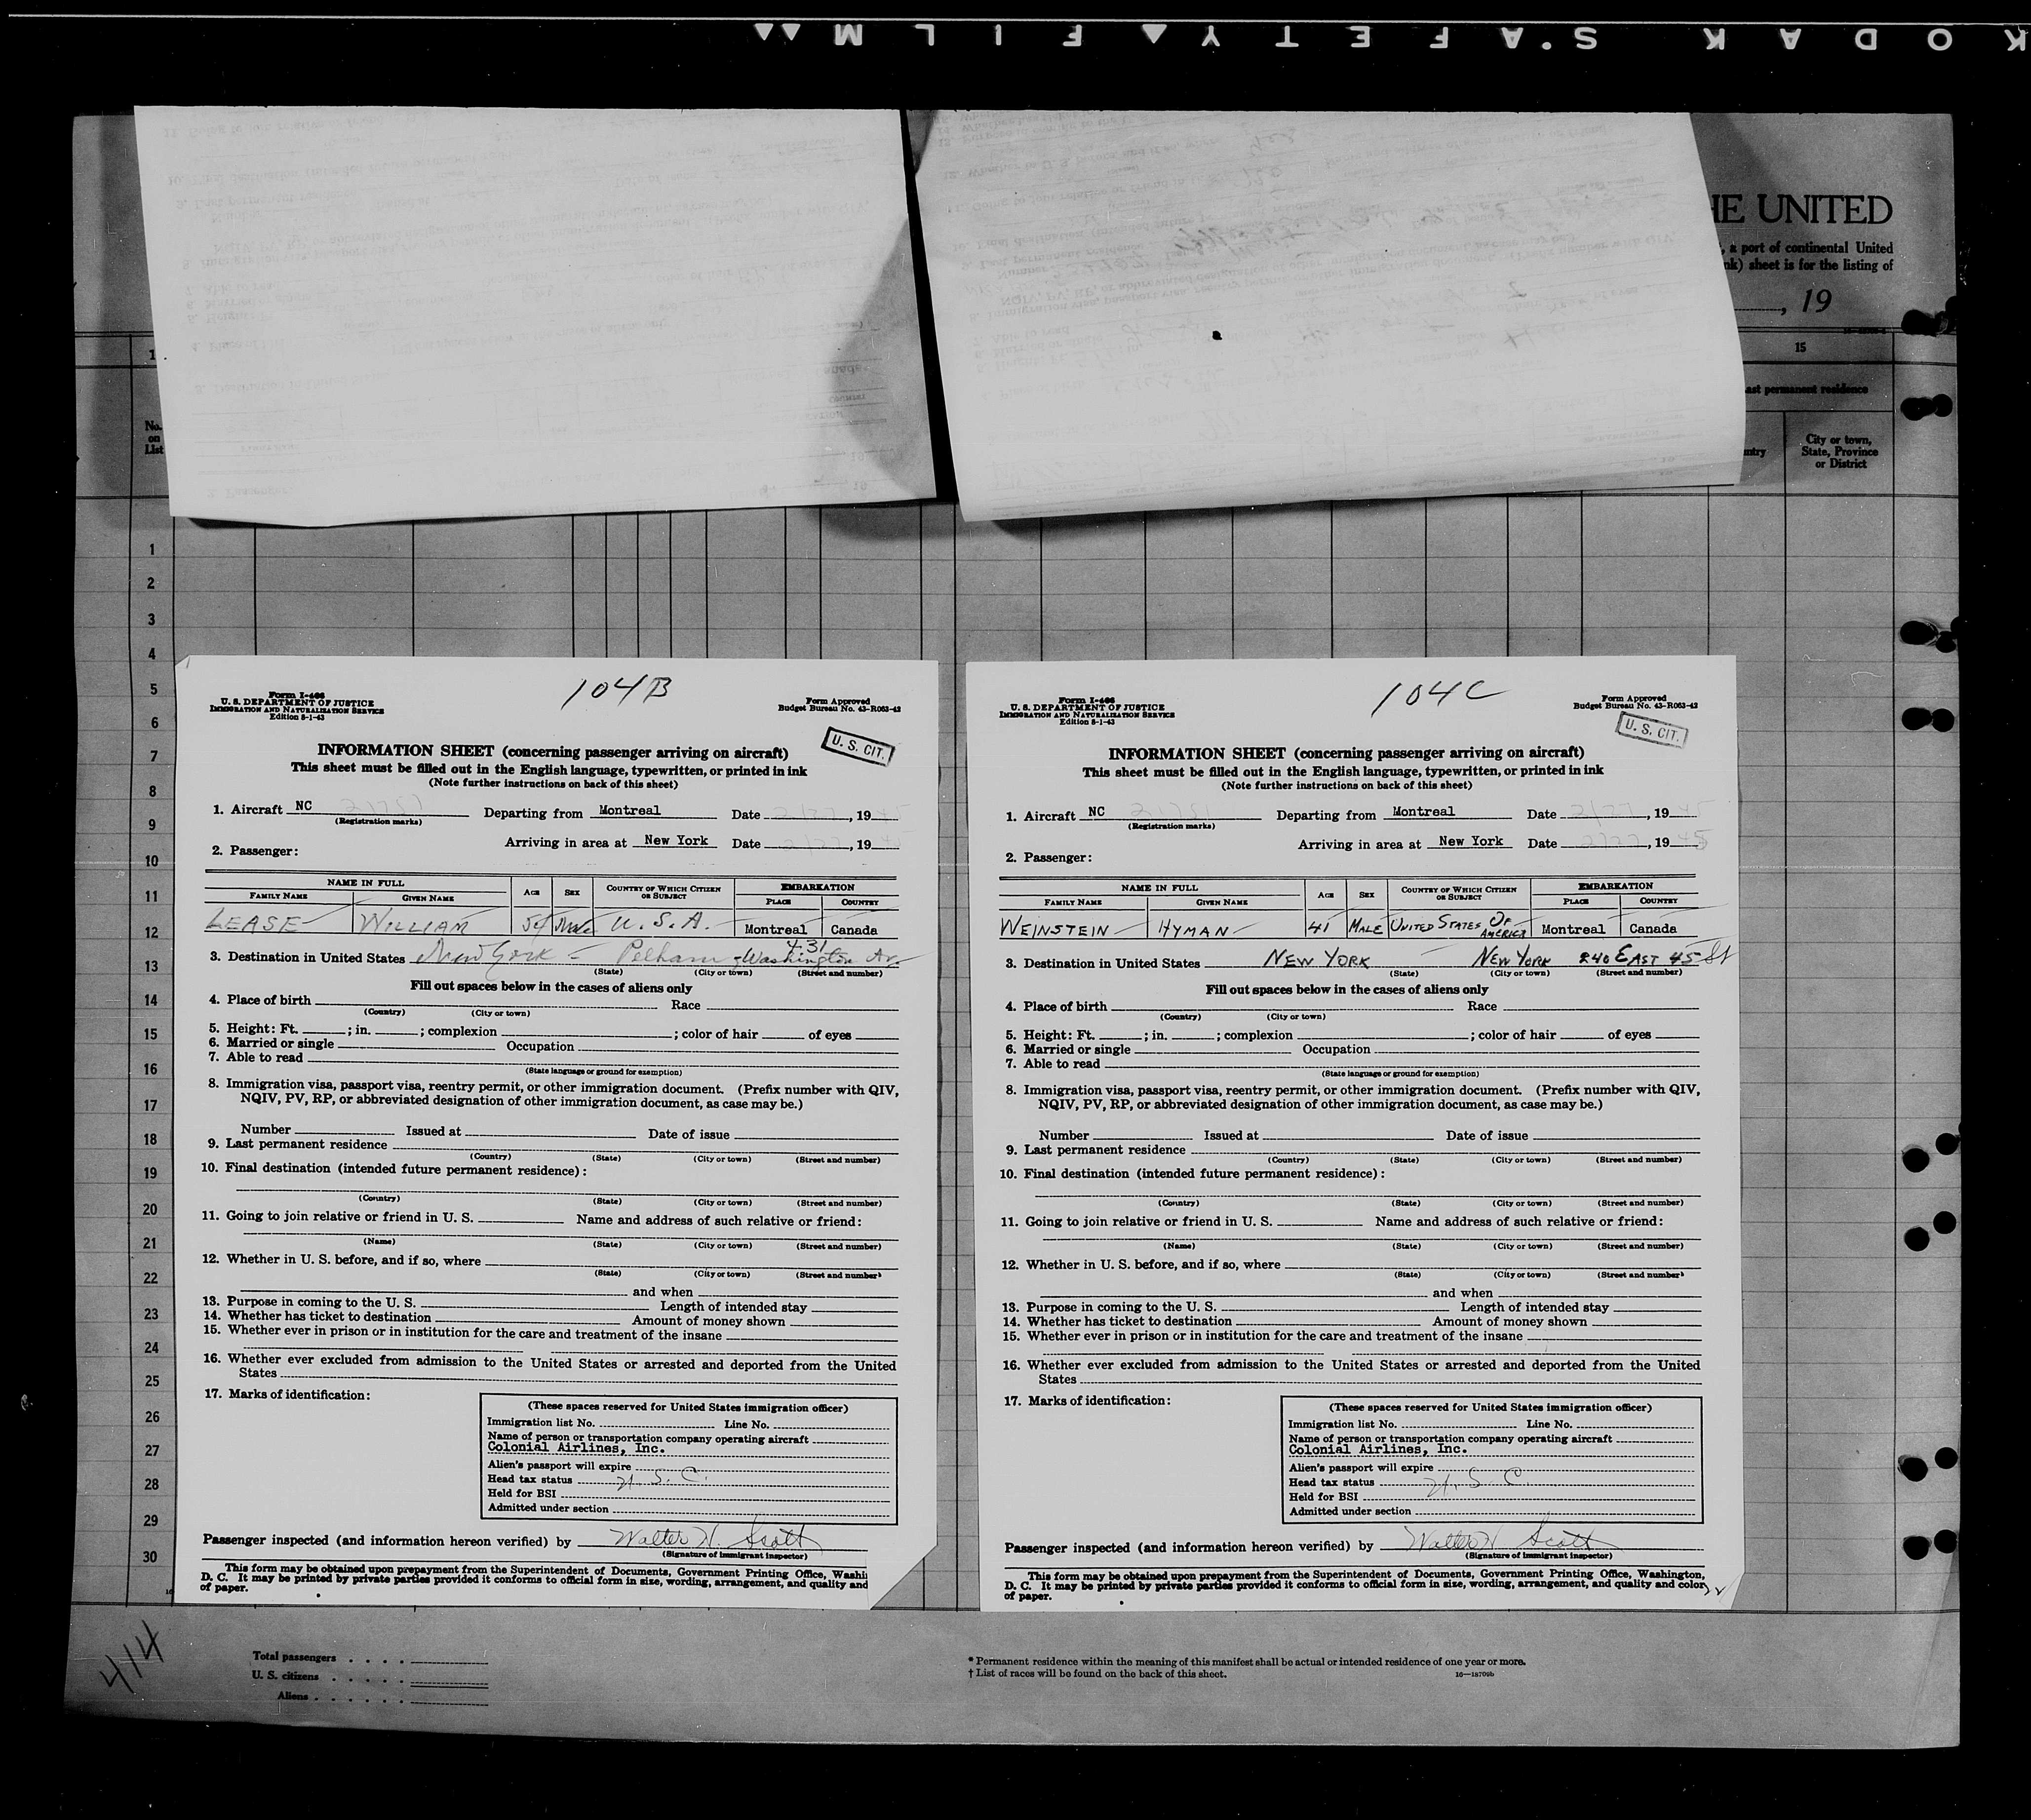 KODAK S'AFETY FILM
HE UNITED
, a port of continental United
nk) sheet is for the listing of
, 19
15
ast permanent residence
No.
on
List
ntry
City or town,
State, Province
or District
1
2
3
4
5
6
7
8
9
10
11
12
13
14
15
16
17
18
19
20
21
22
23
24
25
26
27
28
29
30
104B
Form I-466
U. S. DEPARTMENT OF JUSTICE
IMMIGRATION AND NATURALIZATION SERVICE
Edition 8-1-43
Form Approved
Budget Bureau No. 43-R063-42
U. S. CIT.
INFORMATION SHEET (concerning passenger arriving on aircraft)
This sheet must be filled out in the English language, typewritten, or printed in ink
(Note further instructions on back of this sheet)
1. Aircraft NC Departing from Montreal Date 2/27, 19
(Registration marks)
Arriving in area at New York Date 2/27, 19
2. Passenger:
NAME IN FULL AGE SEX COUNTRY OF WHICH CITIZEN OR SUBJECT EMBARKATION
FAMILY NAME GIVEN NAME PLACE COUNTRY
LEASE WILLIAM Male U. S. A. Montreal Canada
431
3. Destination in United States New York - Pelham - Washington Av.
(State) (City or town) (Street and number)
Fill out spaces below in the cases of aliens only
4. Place of birth Race
(Country) (City or town)
5. Height: Ft. ; in. ; complexion ; color of hair of eyes
6. Married or single Occupation
7. Able to read
(State language or ground for exemption)
8. Immigration visa, passport visa, reentry permit, or other immigration document. (Prefix number with QIV,
NQIV, PV, RP, or abbreviated designation of other immigration document, as case may be.)
Number Issued at Date of issue
9. Last permanent residence
(Country) (State) (City or town) (Street and number)
10. Final destination (intended future permanent residence):
(Country) (State) (City or town) (Street and number)
11. Going to join relative or friend in U. S. Name and address of such relative or friend:
(Name) (State) (City or town) (Street and number)
12. Whether in U. S. before, and if so, where
(State) (City or town) (Street and number)
and when
13. Purpose in coming to the U. S. Length of intended stay
14. Whether has ticket to destination Amount of money shown
15. Whether ever in prison or in institution for the care and treatment of the insane
16. Whether ever excluded from admission to the United States or arrested and deported from the United
States
17. Marks of identification:
(These spaces reserved for United States immigration officer)
Immigration list No. Line No.
Name of person or transportation company operating aircraft
Colonial Airlines, Inc.
Alien's passport will expire
Head tax status U. S. C.
Held for BSI
Admitted under section
Passenger inspected (and information hereon verified) by Walter H. Scott
(Signature of immigrant inspector)
This form may be obtained upon prepayment from the Superintendent of Documents, Government Printing Office, Washi
D. C. It may be printed by private parties provided it conforms to official form in size, wording, arrangement, and quality and
of paper.
104C
Form I-466
U. S. DEPARTMENT OF JUSTICE
IMMIGRATION AND NATURALIZATION SERVICE
Edition 8-1-43
Form Approved
Budget Bureau No. 43-R063-42
U. S. CIT.
INFORMATION SHEET (concerning passenger arriving on aircraft)
This sheet must be filled out in the English language, typewritten, or printed in ink
(Note further instructions on back of this sheet)
1. Aircraft NC Departing from Montreal Date 2/27, 19
(Registration marks)
Arriving in area at New York Date 2/27, 1945
2. Passenger:
NAME IN FULL AGE SEX COUNTRY OF WHICH CITIZEN OR SUBJECT EMBARKATION
FAMILY NAME GIVEN NAME PLACE COUNTRY
WEINSTEIN HYMAN 41 MALE UNITED STATES OF AMERICA Montreal Canada
3. Destination in United States NEW YORK NEW YORK 240 EAST 45 St
(State) (City or town) (Street and number)
Fill out spaces below in the cases of aliens only
4. Place of birth Race
(Country) (City or town)
5. Height: Ft. ; in. ; complexion ; color of hair of eyes
6. Married or single Occupation
7. Able to read
(State language or ground for exemption)
8. Immigration visa, passport visa, reentry permit, or other immigration document. (Prefix number with QIV,
NQIV, PV, RP, or abbreviated designation of other immigration document, as case may be.)
Number Issued at Date of issue
9. Last permanent residence
(Country) (State) (City or town) (Street and number)
10. Final destination (intended future permanent residence):
(Country) (State) (City or town) (Street and number)
11. Going to join relative or friend in U. S. Name and address of such relative or friend:
(Name) (State) (City or town) (Street and number)
12. Whether in U. S. before, and if so, where
(State) (City or town) (Street and number)
and when
13. Purpose in coming to the U. S. Length of intended stay
14. Whether has ticket to destination Amount of money shown
15. Whether ever in prison or in institution for the care and treatment of the insane
16. Whether ever excluded from admission to the United States or arrested and deported from the United
States
17. Marks of identification:
(These spaces reserved for United States immigration officer)
Immigration list No. Line No.
Name of person or transportation company operating aircraft
Colonial Airlines, Inc.
Alien's passport will expire
Head tax status U. S. C.
Held for BSI
Admitted under section
Passenger inspected (and information hereon verified) by Walter H. Scott
(Signature of immigrant inspector)
This form may be obtained upon prepayment from the Superintendent of Documents, Government Printing Office, Washington,
D. C. It may be printed by private parties provided it conforms to official form in size, wording, arrangement, and quality and color
of paper.
414
Total passengers
U. S. citizens
Aliens
* Permanent residence within the meaning of this manifest shall be actual or intended residence of one year or more.
† List of races will be found on the back of this sheet. 16—18709b